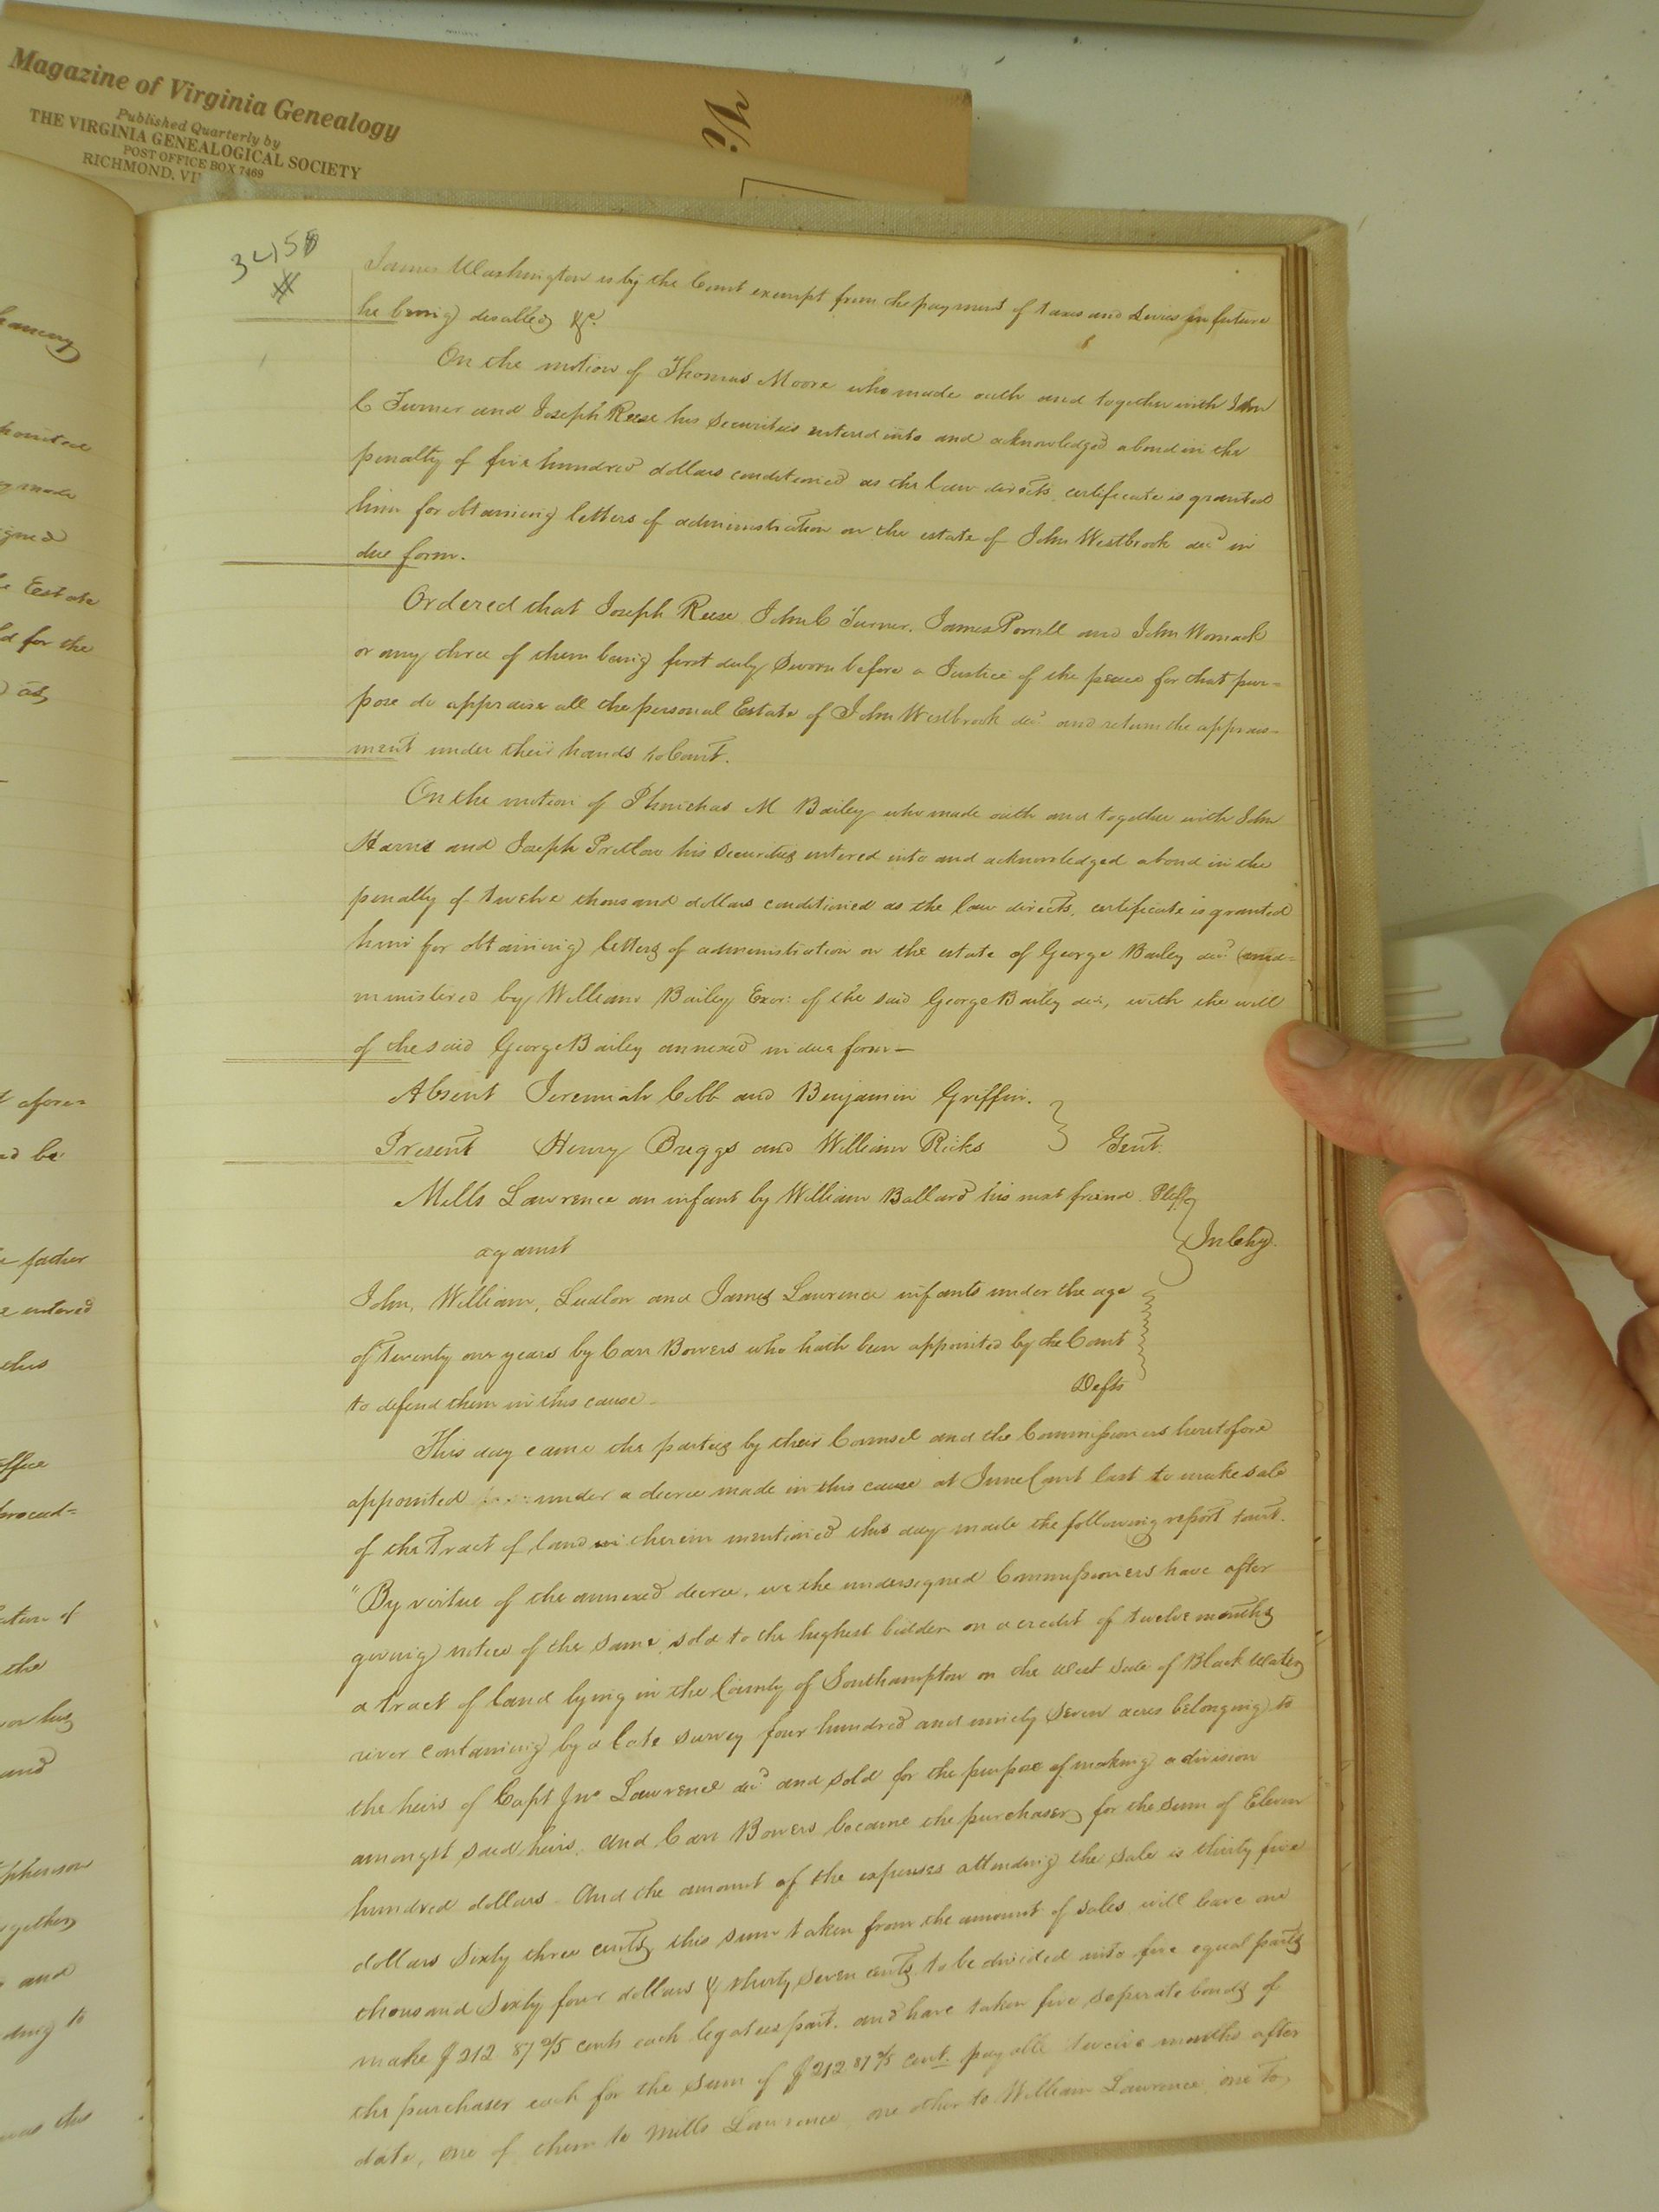 Magazine of Virginia Genealogy
Published Quarterly by
THE VIRGINIA GENEALOGICAL SOCIETY
POST OFFICE BOX 7469
RICHMOND, VI
Estate
ld for the
d be
father
entered
this
office
proceed=
the
and
together
and
ding to
James Washington is by the Court exempt from the payment of taxes and levies in future
he being disabled &c.
On the motion of Thomas Moore who made oath and together with John
C Turner and Joseph Reese his securities entered into and acknowledged a bond in the
penalty of five hundred dollars conditioned as the law directs, certificate is granted
him for obtaining letters of administration on the estate of John Westbrook decd in
due form.
Ordered that Joseph Reese, John C Turner, James Porrill and John Womack
or any three of them being first duly sworn before a Justice of the peace for that pur-
pose do appraise all the personal Estate of John Westbrook decd and return the appraise-
ment under their hands to Court.
On the motion of Phinehas M Bailey who made oath and together with John
Harris and Joseph Pretlow his securities entered into and acknowledged a bond in the
penalty of twelve thousand dollars conditioned as the law directs, certificate is granted
him for obtaining letters of administration on the estate of George Bailey decd (unad-
ministered by William Bailey Exor: of the said George Bailey decd, with the will
of the said George Bailey annexed in due form—
Absent Jeremiah Cobb and Benjamin Griffin.
Present Henry Briggs and William Ricks Gent.
Mills Lawrence an infant by William Ballard his next friend. Pltff
against In Chy.
John, William, Ludlow and James Lawrence infants under the age
of twenty one years by Carr Bowers who hath been appointed by the Court
to defend them in this cause. Defts
This day came the parties by their Counsel and the Commissioners heretofore
appointed under a decree made in this cause at June Court last to make sale
of the tract of land in therein mentioned this day made the following report towit.
"By virtue of the annexed decree, we the undersigned Commissioners have after
giving notice of the same, sold to the highest bidder on a credit of twelve months
a tract of land lying in the County of Southampton on the West side of Black Water
river containing by a late survey four hundred and ninety seven acres belonging to
the heirs of Capt Jno Lawrence decd and sold for the purpose of making a division
amongst said heirs, and Carr Bowers became the purchaser for the sum of Eleven
hundred dollars. And the amount of the expenses attending the sale is thirty five
dollars sixty three cents, this sum taken from the amount of sales will leave one
thousand sixty four dollars & thirty seven cents to be divided into five equal parts
make $212 87 2/5 cents each legatees part. and have taken five seperate bonds of
the purchaser each for the sum of $212 87 2/5 cent. payable twelve months after
date, one of them to Mills Lawrence, one other to William Lawrence, one to